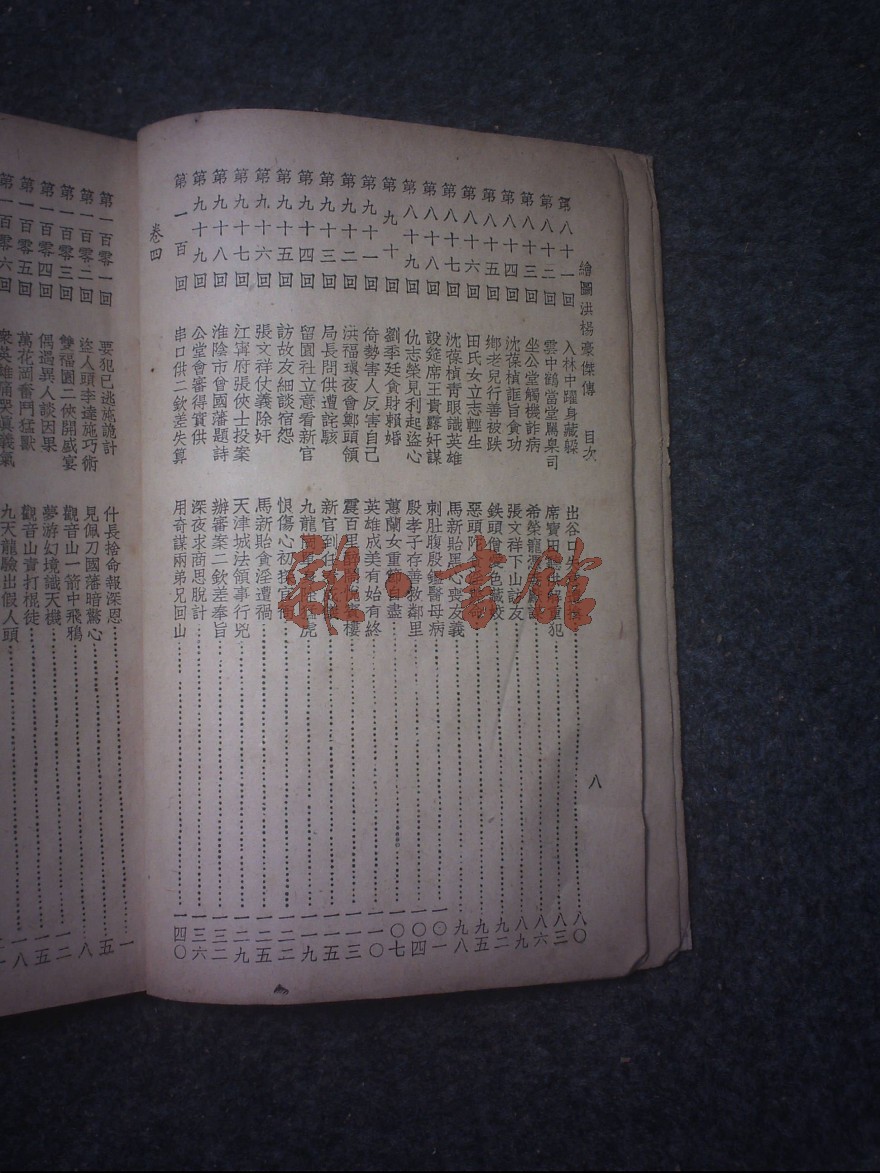 繪圖洪楊豪傑傳 目次 八
第八十一回 入林中躍身藏躲 出谷口失 八〇
第八十二回 雲中鶴當堂罵臬司 席寶田 重犯 八三
第八十三回 坐公堂觸機詐病 希榮寵 八六
第八十四回 沈葆楨誑旨貪功 張文祥下山訪友 八九
第八十五回 鄉老兒行善被跌 鐵頭僧 色藏 九二
第八十六回 田氏女立志輕生 惡頭陀 九五
第八十七回 沈葆楨青眼識英雄 馬新貽黑心喪友義 九八
第八十八回 設筵席王貴露奸謀 刺肚腹殷 醫母病 一〇一
第八十九回 仇志榮見利起盜心 殷孝子存善救鄰里 一〇四
第九十回 劉季廷貪財賴婚 蕙蘭女重節自盡 一〇七
第九十一回 倚勢害人反害自己 英雄成美有始有終 一一〇
第九十二回 洪福瑱夜會鄭頭領 震百里 樓 一一三
第九十三回 局長問供遭詫駭 新官到任 一一五
第九十四回 留園社立意看新官 九龍 虎 一一九
第九十五回 訪故友細談宿怨 恨傷心初 官 一二二
第九十六回 張文祥仗義除奸 馬新貽貪淫遭禍 一二五
第九十七回 江寧府張俠士投案 天津城法領事行兇 一二九
第九十八回 淮陰市曾國藩題詩 辦審案二欽差奉旨 一三二
第九十九回 公堂會審得實供 深夜求商思脫計 一三六
第一百回 串口供二欽差失算 用奇謀兩弟兄回山 一四〇
卷四
第一百零一回 要犯已逃施詭計 什長捨命報深恩 一
第一百零二回 盜人頭李逵施巧術 見佩刀國藩暗驚心 五
第一百零三回 雙福園二俠開盛宴 觀音山一箭中飛鴉 八
第一百零四回 偶遇異人談因果 夢游幻境識天機 一二
第一百零五回 萬花澗奮鬥猛獸 觀音山責打棍徒 一五
第一百零六回 衆英雄痛哭眞義氣 九天龍驗出假人頭 一八
雜·書館